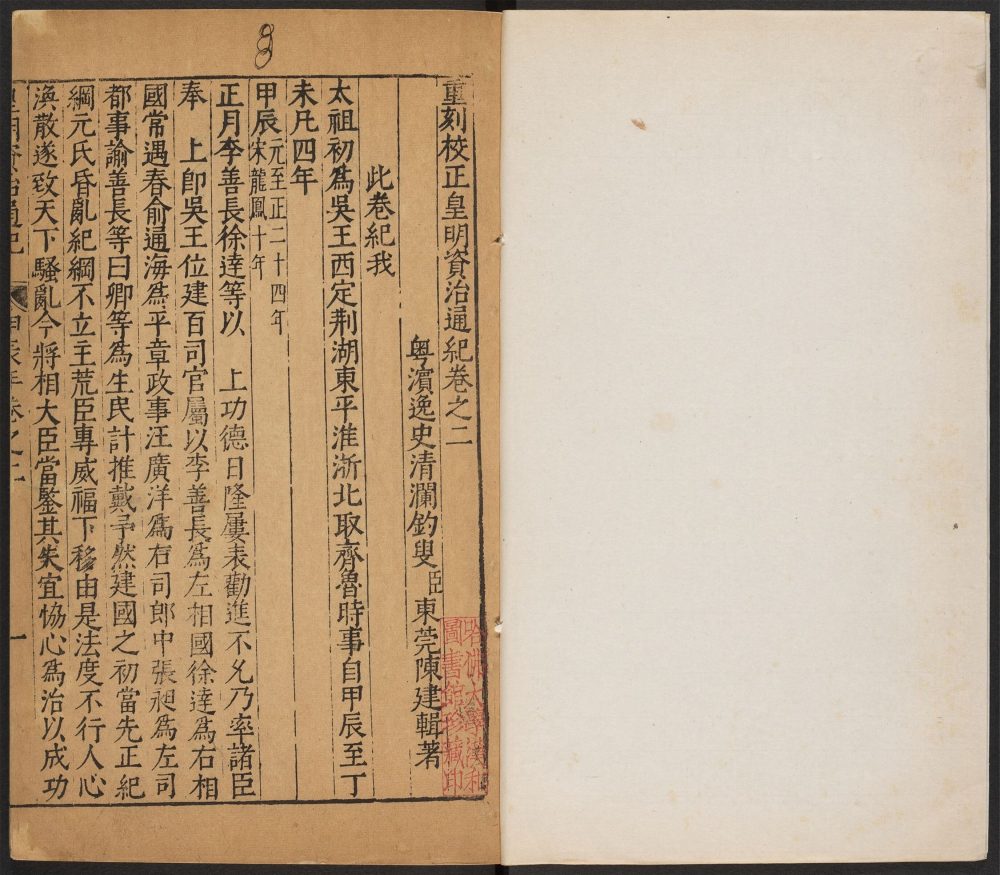 重刻校正皇明資治通紀卷之二
粤濱逸史清瀾釣叟臣東莞陳建輯著
此卷紀我
太祖初爲吳王西定荆湖東平淮浙北取齊魯時事自甲辰至丁
未凡四年
甲辰元至正二十四年宋龍鳳十年
正月李善長徐達等以　上功德日隆屢表勸進不允乃率諸臣
奉　上卽吳王位建百司官屬以李善長爲左相國徐達爲右相
國常遇春俞通海爲平章政事汪廣洋爲右司郎中張昶爲左司
都事諭善長等曰卿等爲生民計推戴予然建國之初當先正紀
綱元氏昏亂紀綱不立主荒臣專威福下移由是法度不行人心
渙散遂致天下騷亂今將相大臣當鑒其失宜恊心爲治以成功
皇明資治通紀　甲辰年卷之二　一
哈佛大學漢和圖書館珍藏印